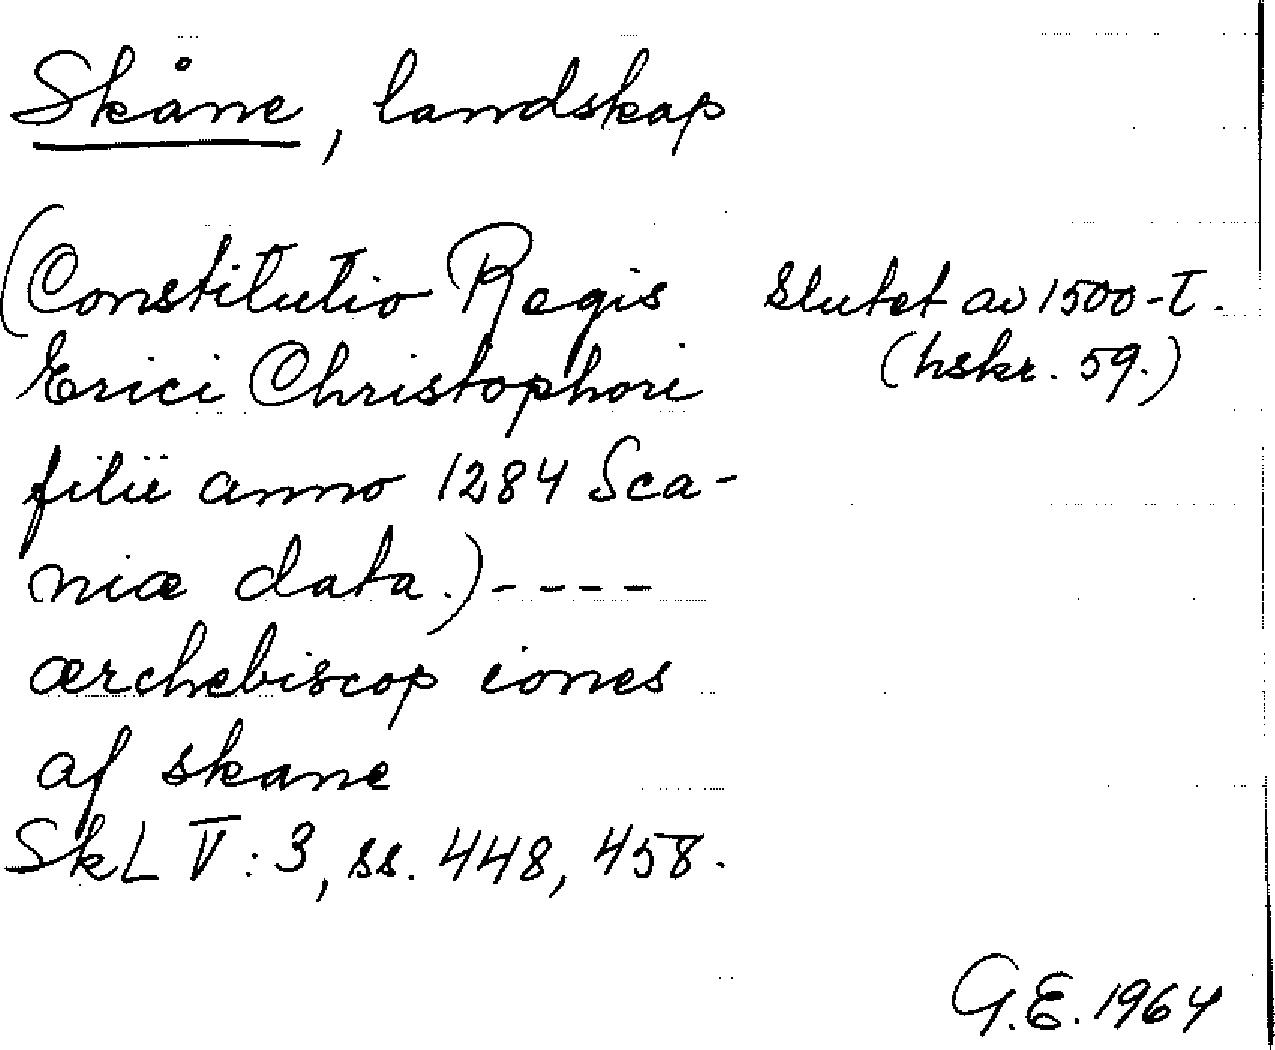 Skåne, landskap
(Constitutio Regis
Erici Christophori
filii anno 1284 Sca-
niæ data.)----
ærchebiscop iones
af skane
SkL V:3, ss. 448, 458.
Slutet av 1500-t.
(hskr. 59.)
G.E. 1964